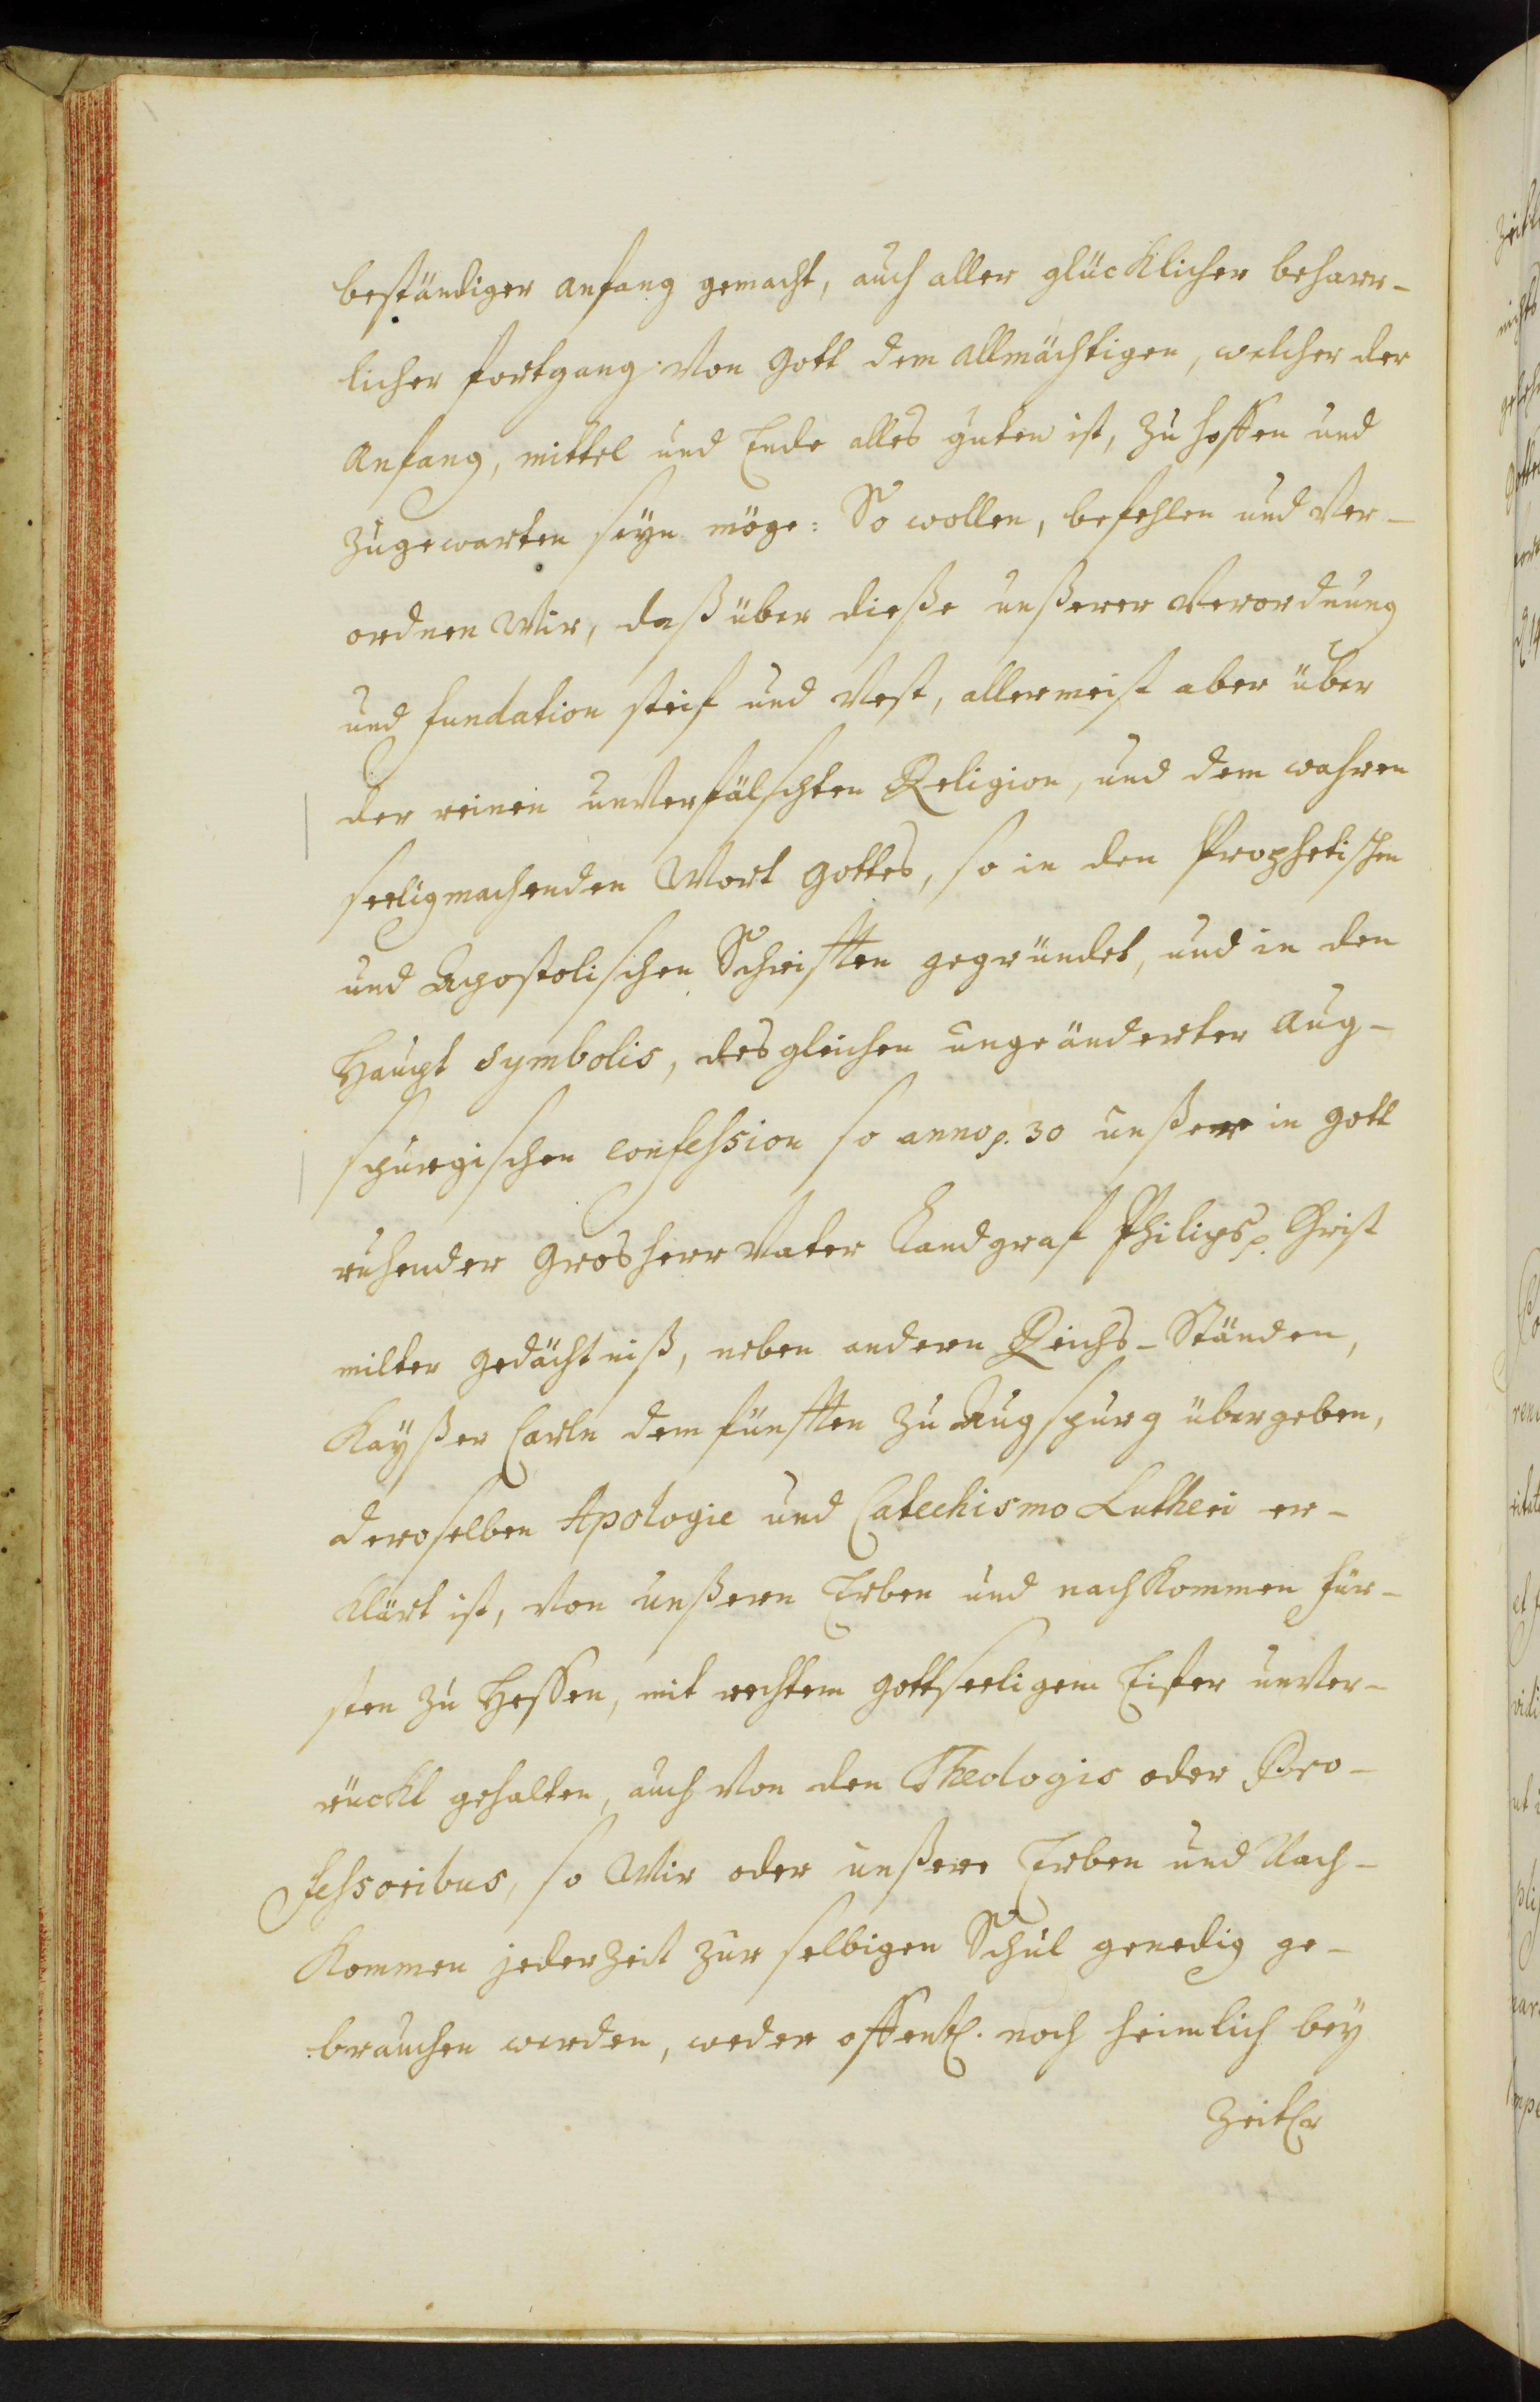 beständiger anfang gemacht, auch aller glücklicher beharr-
licher fortgang von Gott dem allmächtigen, welcher der
anfang, mittel und Ende alles guten ist, zu hoffen und
zugewarten seyn möge: So wollen, befehlen und ver-
ordnen Wir, daß über dieße unßerer Verordnung
und fundation steif und vest, allermeist aber über
der reinen unverfälschten Religion, und dem wahren
seeligmachenden Wort Gottes, so in den Prophetischen
und Apostolischen Schrifften gegründet, und in den
Haupt Symbolis, desgleichen ungeänderter Aug-
spurgischen Confession so anno p. 30 unßer in Gott
ruhender Grosherr Vater Landgraf Philips p. Christ
milter gedächtniß, neben andern Reichs-Ständen,
Kayßer Carln dem fünfften zu Augspurg übergeben,
deroselben Apologie und Catechismo Lutheri er-
klärt ist, von unßern Erben und nachkommen Für-
sten zu Hessen, mit rechtem gottseeligem Eifer unver-
rückt gehalten, auch von den Theologis oder Pro-
fessoribus, so Wir oder unßere Erben und Nach-
kommen jederzeit zur selbigen Schul genedig ge-
brauchen werden, weder offentl. noch heimlich bey